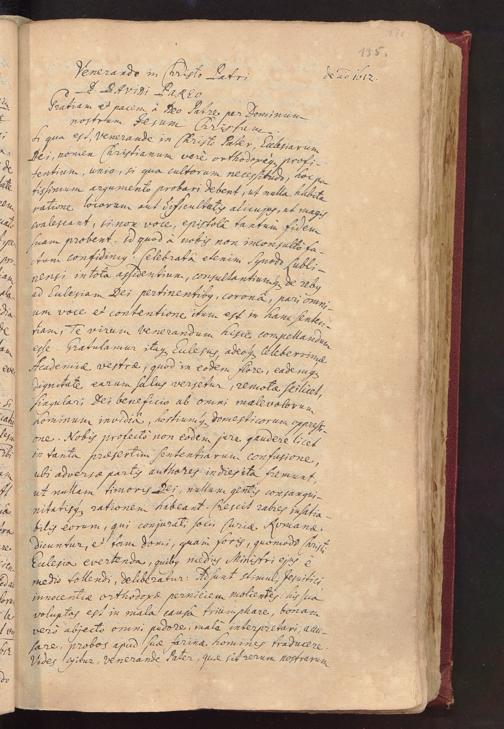 135.
Venerando in Christo Patri de aō 1612.
D. DAVIDI PAREO
Gratiam et pacem à Deo Patre, per Dominum
nostrum Jesum Christum.
Si qua est, Venerande in Christo Pater, Ecclesiarum
Dei, nomen Christianum verè orthodoxèq; profi-
tentium, unio, si qua cultorum necessitudo, hoc po-
tissimum argumento probari debent, ut nulla habita
ratione locorum aut difficultatis alicujus, ut magis
coalescant, si non voce, epistolis tantum fidem
suam probent. Id quod à nobis non inconsulto fac-
tum confidimus. Celebratâ etenim Synodo Lubli-
nensi in totâ assidentium, consultantiumq; de rebus
ad Ecclesiam Dei pertinentibus, coronâ, pari omni-
um voce et contentione itum est in hanc senten-
tiam, Te virum venerandum hisce compellandum
esse. Gratulamur itaq; Ecclesijs, adeoq; celeberrimæ
Academiæ vestræ, quod in eodem flore, eademq;
dignitate earum salus versetur, remotæ scilicet,
singulari Dei beneficio ab omni malevolorum
hominum invidiâ, hostiumq; domesticorum oppressi-
one. Nobis profectò non eodem jure gaudere licet
in tanta præsertim sententiarum confusione,
ubi adversæ partis authores indies ita fremunt,
ut nullam timoris Dei, nullam gentis consangui-
nitatisq; rationem habeant. Crescit rabies insatia-
bilis eorum, qui conjurati socij Curiæ Romanæ
dicuntur, et tam domi, quàm foris, quomodo Christi
Ecclesia evertenda, quibus medijs Ministri ejus è
medio tollendi, deliberatur. Adsunt stimuli Jesuitici
innocentiæ orthodoxæ perniciem molientes: his sua
voluptas est in malâ causâ triumphare, bonam
verò abjecto omni pudore, malâ interpretari, accu-
sare, probos apud suæ farinæ homines traducere.
Vides igitur, venerande Pater, quæ sit rerum nostrarum